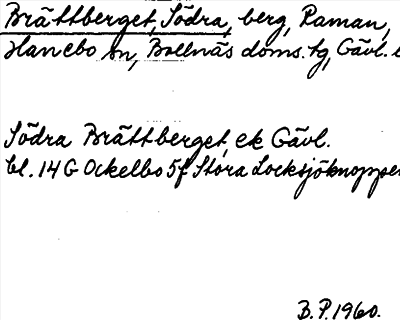 Brättberget, Södra, berg, Raman,
Hanebo sn, Bollnäs doms. tg, Gävl. l
Södra Brättberget, ek Gävl.
bl. 14 G Ockelbo 5f Stora Locksjöknoppen
B.P. 1960.